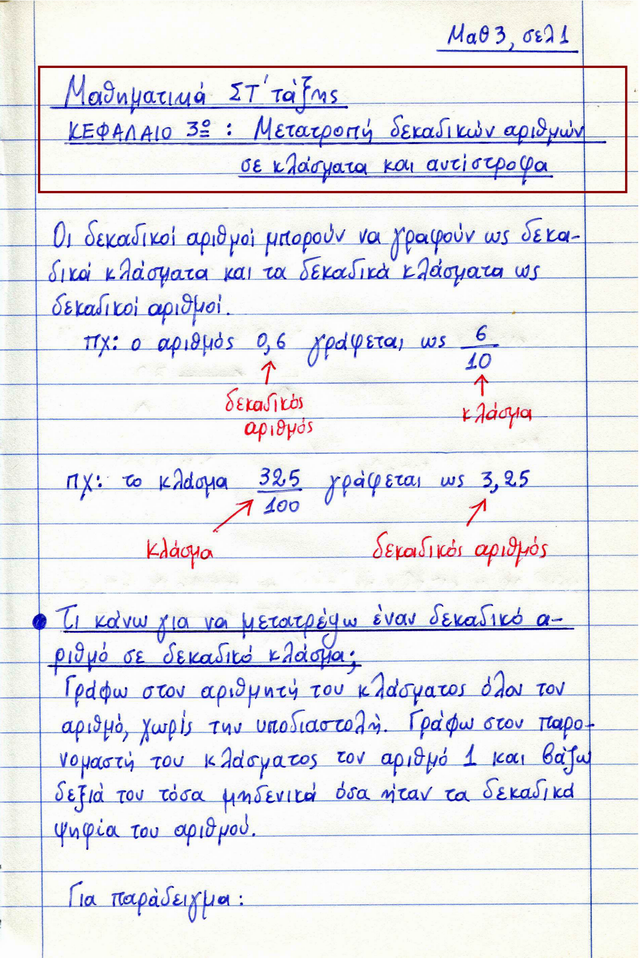 Μαθ3, σελ1
Μαθηματικά ΣΤ΄ τάξης
ΚΕΦΑΛΑΙΟ 3ο : Μετατροπή δεκαδικών αριθμών
σε κλάσματα και αντίστροφα
Οι δεκαδικοί αριθμοί μπορούν να γραφούν ως δεκα-
δικά κλάσματα και τα δεκαδικά κλάσματα ως
δεκαδικοί αριθμοί.
πχ: ο αριθμός 0,6 γράφεται ως 6/10
δεκαδικός κλάσμα
αριθμός
πχ: το κλάσμα 325/100 γράφεται ως 3,25
κλάσμα δεκαδικός αριθμός
• Τι κάνω για να μετατρέψω έναν δεκαδικό α-
ριθμό σε δεκαδικό κλάσμα;
Γράφω στον αριθμητή του κλάσματος όλον τον
αριθμό, χωρίς την υποδιαστολή. Γράφω στον παρο-
νομαστή του κλάσματος τον αριθμό 1 και βάζω
δεξιά του τόσα μηδενικά όσα ήταν τα δεκαδικά
ψηφία του αριθμού.
Για παράδειγμα: